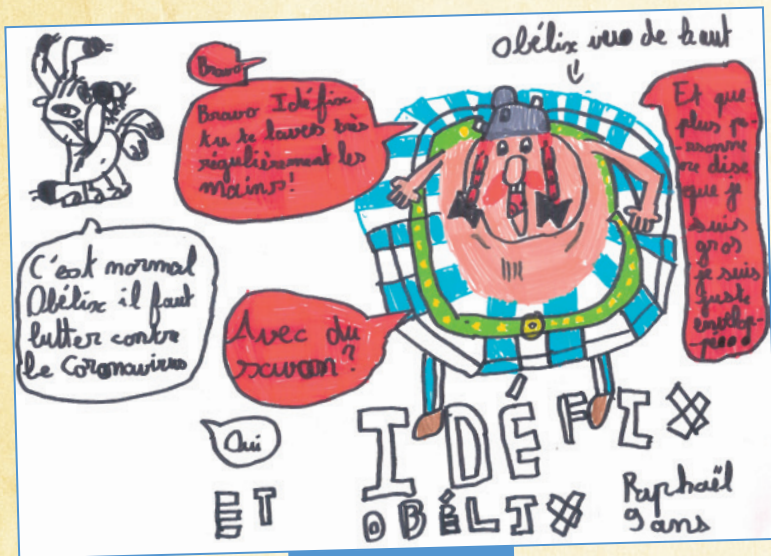 Obélix vu de haut
Bravo
Bravo Idéfix
tu te laves très
régulièrement les
mains!
Et que
plus pe-
rsonne
ne dise
que je
suis
gros
je suis
juste
envelop-
C'est normal
Obélix il faut
lutter contre
le Coronavirus
Avec du
savon?
Oui
IDÉFIX
ET OBÉLIX
Raphaël
9 ans